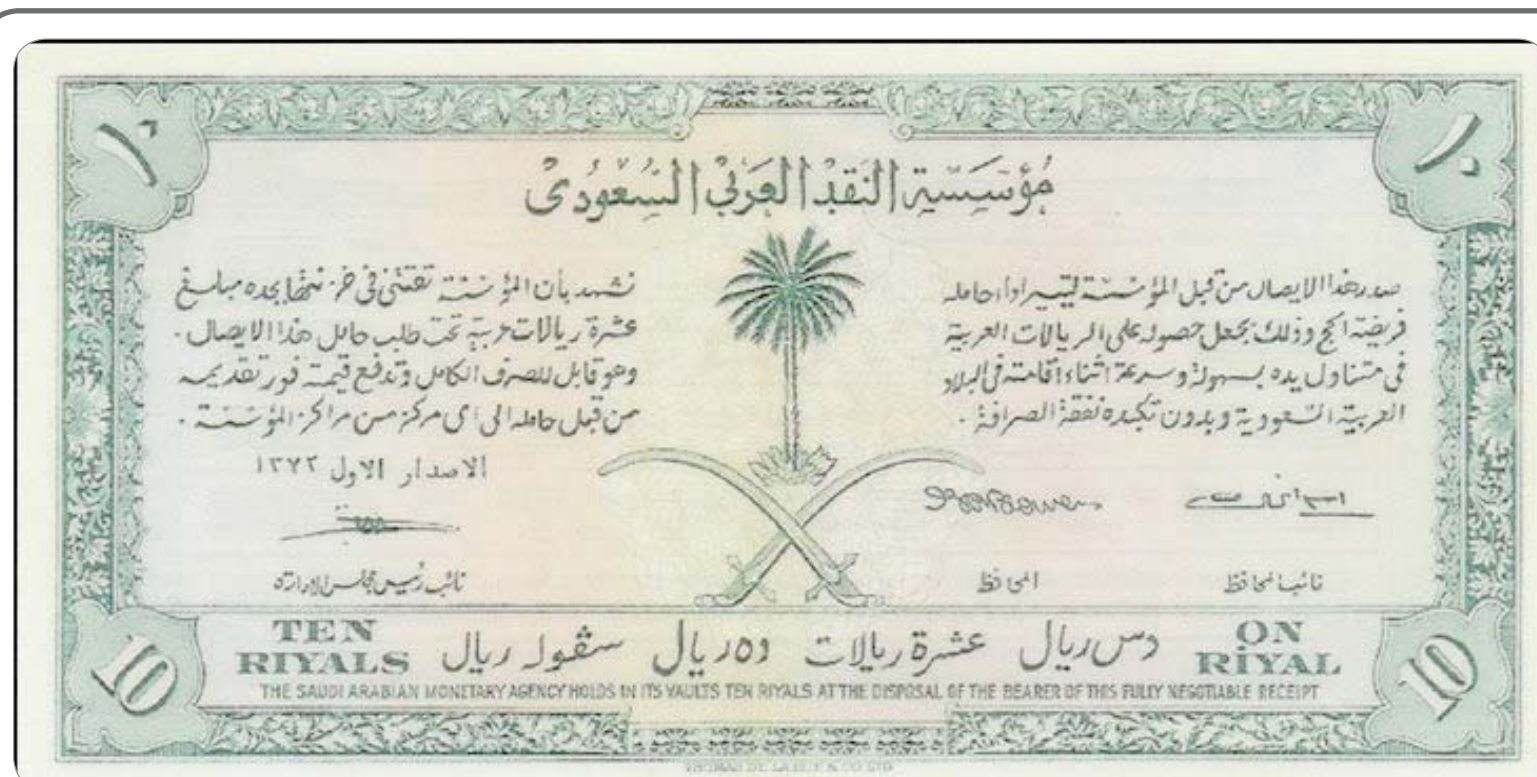 ١٠
١٠
مؤسسة النقد العربي السعودي
صدر هذا الايصال من قبل المؤسسة لتيسير اداء حامله
فريضة الحج وذلك بجعل حصوله على الريالات العربية
في متناول يده بسهولة وسرعة اثناء اقامته في البلاد
العربية السعودية وبدون تكبده نفقة الصرافة .
نشهد بأن المؤسسة تقتني في خزينتها بجده مبلغ
عشرة ريالات عربية تحت طلب حامل هذا الايصال .
وهو قابل للصرف الكامل وتدفع قيمته فور تقديمه
من قبل حامله الى اى مركز من مراكز المؤسسة .
الاصدار الاول ١٣٧٢
نائب المحافظ
المحافظ
نائب رئيس مجلس الادارة
TEN
RIYALS
دس ريال
عشرة ريالات
ده ريال
سڤوله ريال
ON
RİYAL
THE SAUDI ARABIAN MONETARY AGENCY HOLDS IN ITS VAULTS TEN RIYALS AT THE DISPOSAL OF THE BEARER OF THIS FULLY NEGOTIABLE RECEIPT
10
10
THOMAS DE LA RUE & CO LTD